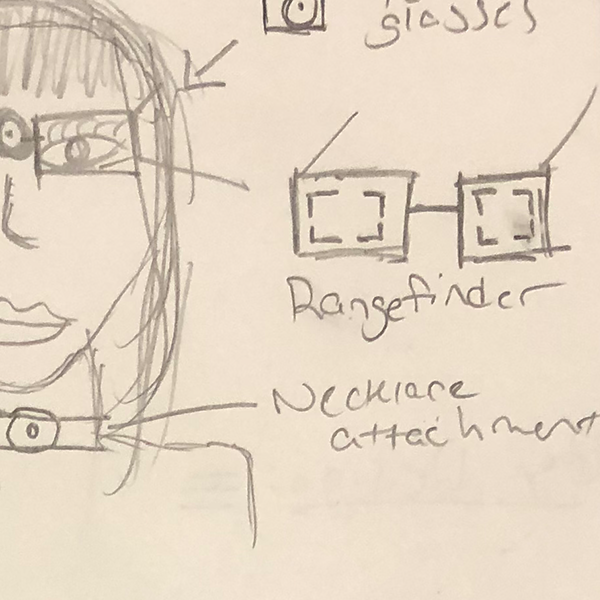 glasses
Rangefinder
Necklace
attachment